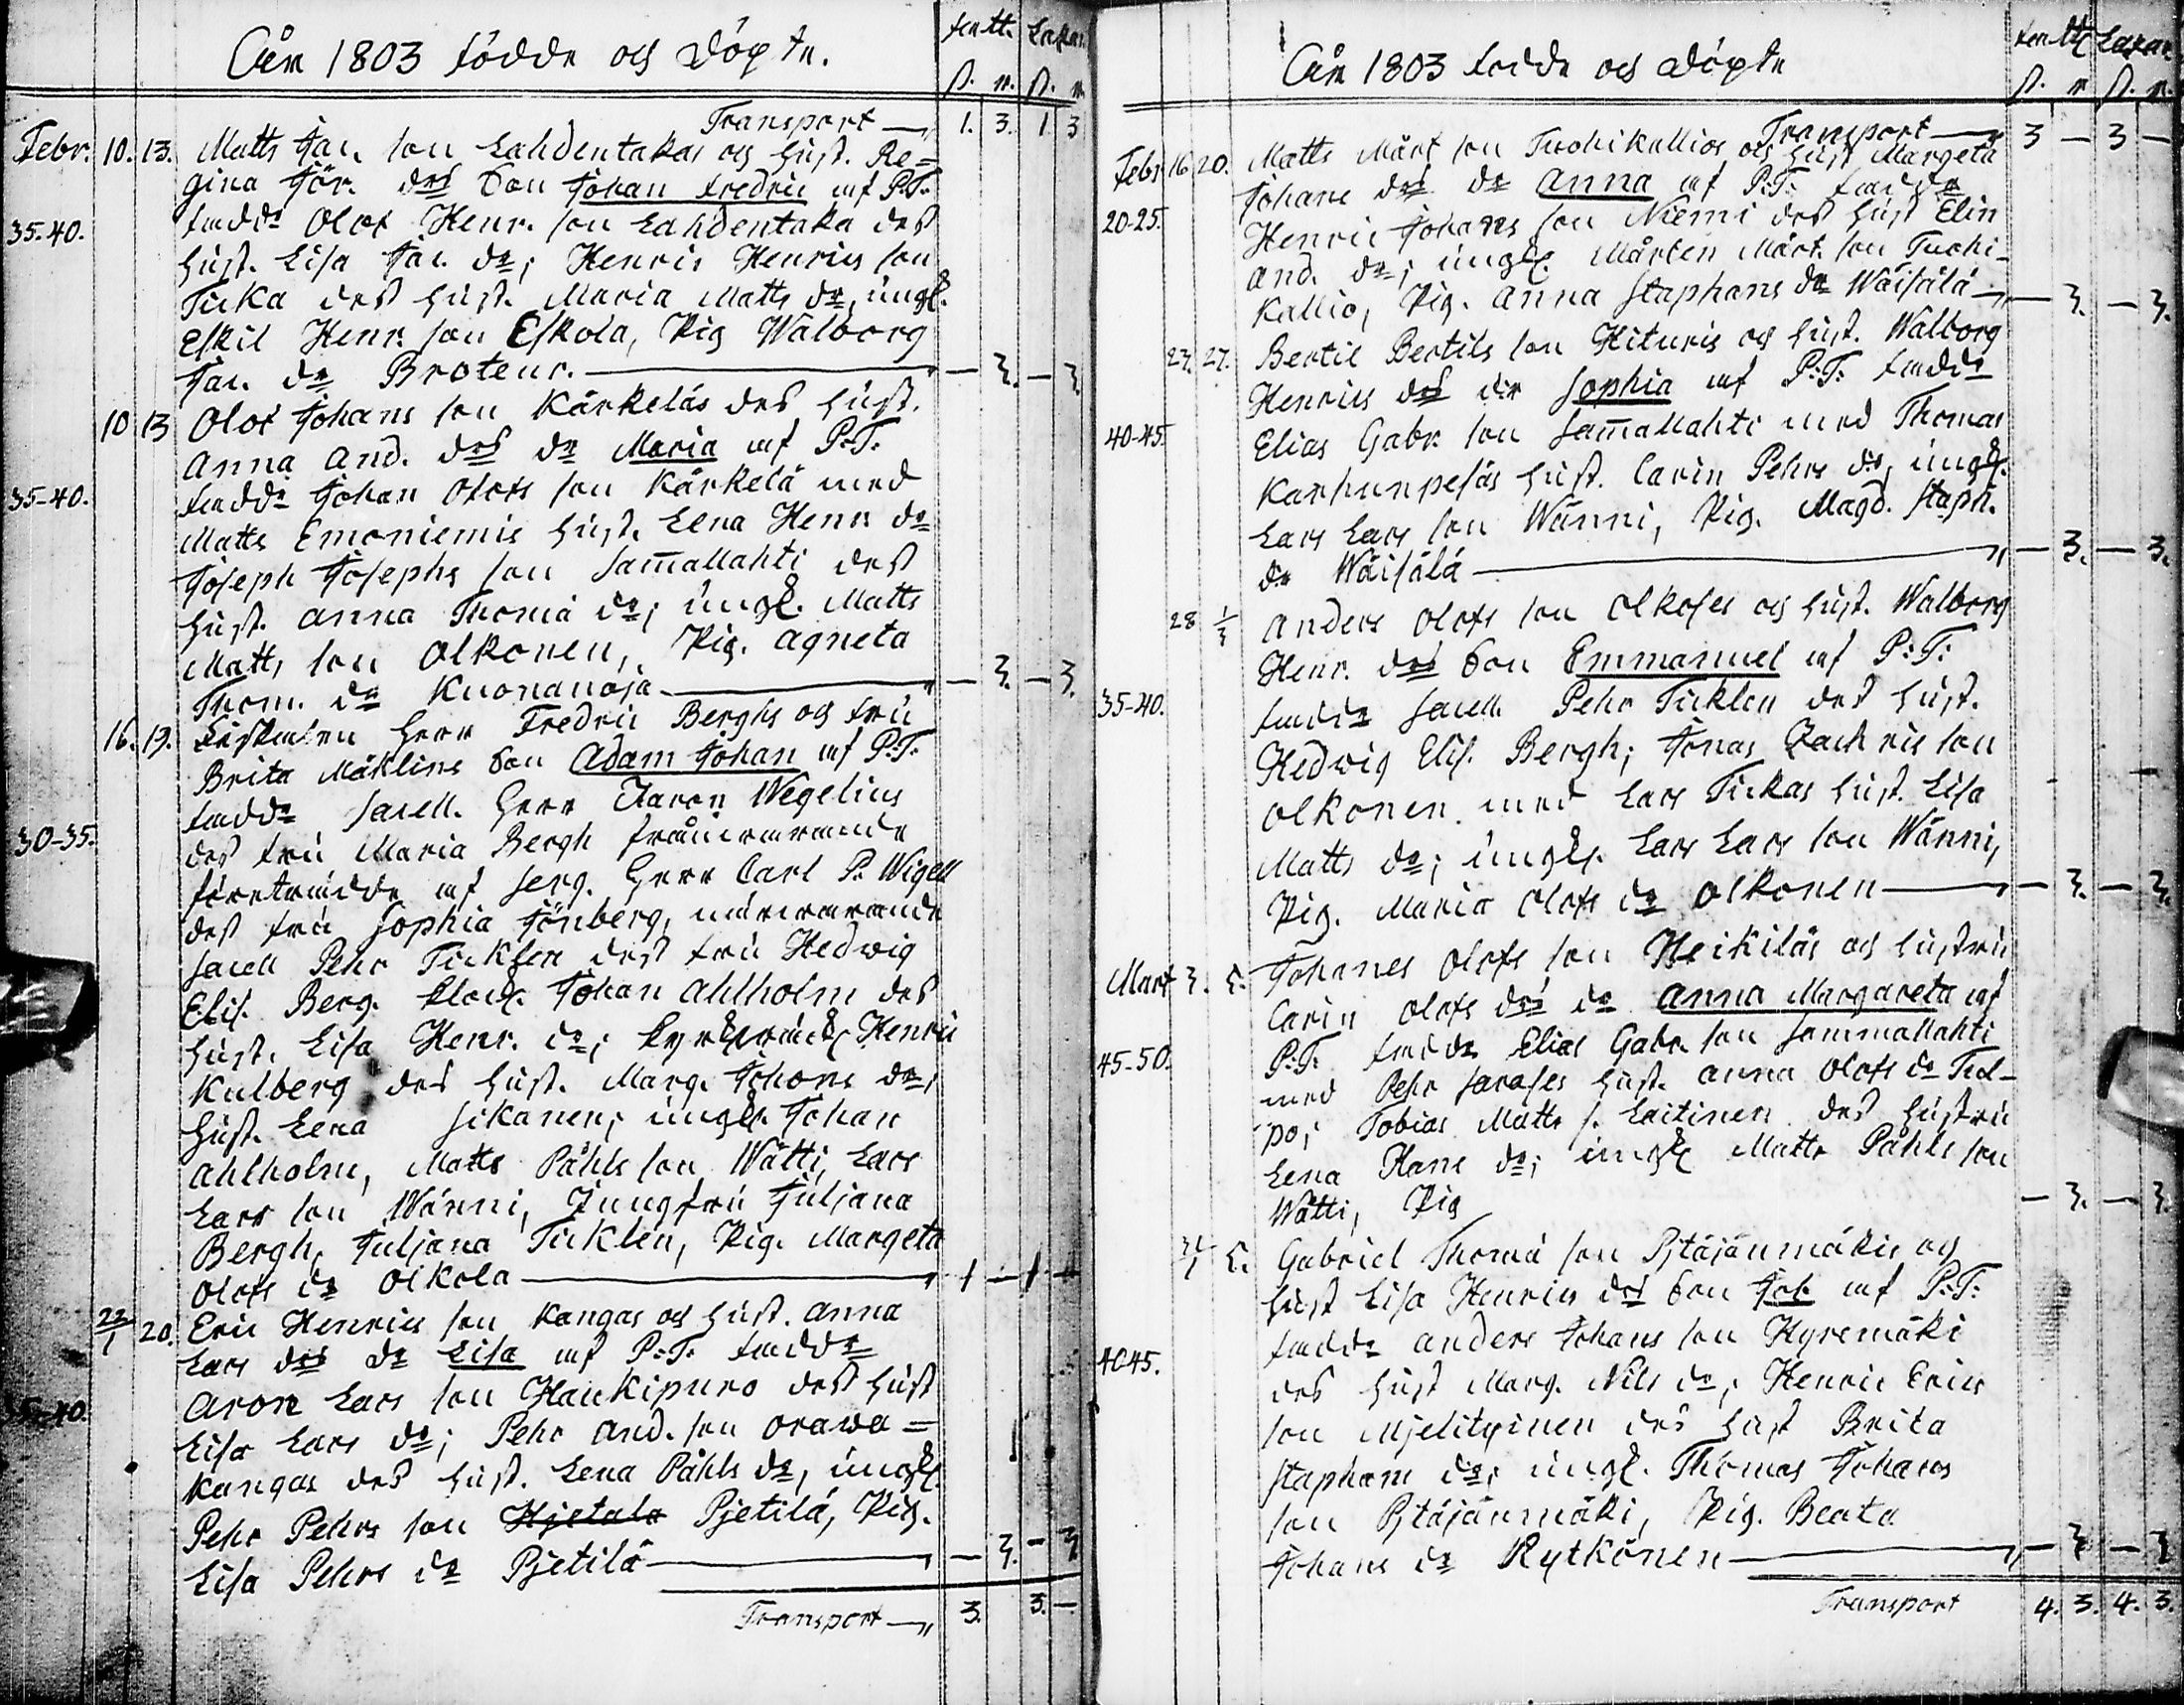 År 1803 födde och Döpte.
Transport — 1. 3. 1. 3
Febr. 10. 13. Matts Jac. son Lahdentakas och hust. Re=
gina Jör. dr son Johan Fredric af P:T.
35-40. fadd. Olof Henr. son Lahdentaka des
hust. Lisa Jac. dr; Henric Henrics son
Ticka des hust. Maria Matts dr, ungk.
Eskil Henr. son Eskola, Pig Walborg
Jac. dr Broteur. — 3. — 3.
10 13 Olof Johans son Kärkeläs des hust.
Anna And. drs dr Maria af P:T.
35-40. fadd. Johan Olofs son Kärkelä med
Matts Emoniemis hust. Lena Henr. dr
Joseph Josephs son Sam̅allahti des
hust. Anna Thomä dr; ungk. Matts
Matts son Olkonen, Pig. Agneta
Thom. dr Kuonanoja — 3. — 3.
16. 19. Herr Fredric Berghs och fru
Brita Mäklins son Adam Johan af P:T.
fadd. Sacell. Herr Aaron Wegelius
30-35. des fru Maria Bergh frånvarande
företrädde af Serg. Herr Carl P. Wigell
des fru Sophia Jönberg, närvarande
Sacell Pehr Ticklen des fru Hedwig
Elis. Berg. Klock. Johan Ahlholm des
hust. Lisa Henr. dr; Henric
Kulberg des hust. Marg. Johans dr;
hust. Lena Sikanen; ungk. Johan
Ahlholm, Matts Påhls son Wätti, Lars
Lars son Wänni, Jungfru Juljana
Bergh, Juljana Ticklén, Pig. Margeta
Olofs dr Olkola — 1 — 1 —
22/1 20. Eric Henrics son Kangas och hust. Anna
Lars drs dr Lisa af P:T. fadd.
35-40. Aron Lars son Haukipuro des hust
Lisa Lars dr; Pehr And. son Orawa=
kangas des hust. Lena Påhls dr, ungk.
Pehr Pehrs son Hjetala Pjetilä, Pig.
Lisa Pehrs dr Pjetilä — 3. — 3
Transport — 3. 3. —
År 1803 födde och döpte
Transport — 3 — 3 —
Febr 16 20. Matts Mårt son Tuohikallios och hust Margeta
Johans drs dr Anna af P:T: fadd.
20-25. Henric Johans son Niemi des hust Elin
And. dr; ungk. Mårten Mårt. son Tuohi-
kallio, Pig. Anna Staphans dr Wäisälä — 3. — 3.
27. 27. Bertil Bertils son Hituris och hust. Walborg
Henrics drs dr Sophia af P:T: fadd.
40-45. Elias Gabr. son Sam̅allahti med Thomas
Karhunpesäs hust. Carin Pehrs dr, ungk.
Lars Lars son Wänni, Pig. Magd. Staph.
dr Wäisälä — 3. — 3.
28 1/3 Anders Olofs son Olkoses och hust. Walborg
Henr. drs son Emmanuel af P:T:
35-40. fadd. Sacell. Pehr Ticklen des hust.
Hedwig Elis. Bergh; Jonas Zachris son
Olkonen med Lars Tickas hust. Lisa
Matts dr; ungk. Lars Lars son Wänni,
Pig. Maria Olofs dr Olkonen — 3. — 3.
Mart 3. 5. Johanes Olofs son Heikiläs och hustru
Carin Olofs drs dr Anna Margareta af
45-50. P:T. fadd. Elias Gabr. son Sammallahti
med Pehr Sarases hust. Anna Olofs dr Tul-
po; Tobias Matts s. Laitinen des hustru
Lena Hans dr; ungk Matts Påhls son
Wätti, Pig — 3. — 3.
5. Gabriel Thomä son Pjtäjänmäkis och
hust Lisa Henrics drs son Job af P:T:
4045. fadd. Anders Johans son Hyremäki
des hust Marg. Nils dr; Henric Erics
son Mjelityinen des hust Brita
Staphans dr; ungk. Thomas Johans
son Pjtäjänmäki, Pig. Beata
Johans dr Rytkönen — 3 — 3
Transport 4. 3. 4. 3.